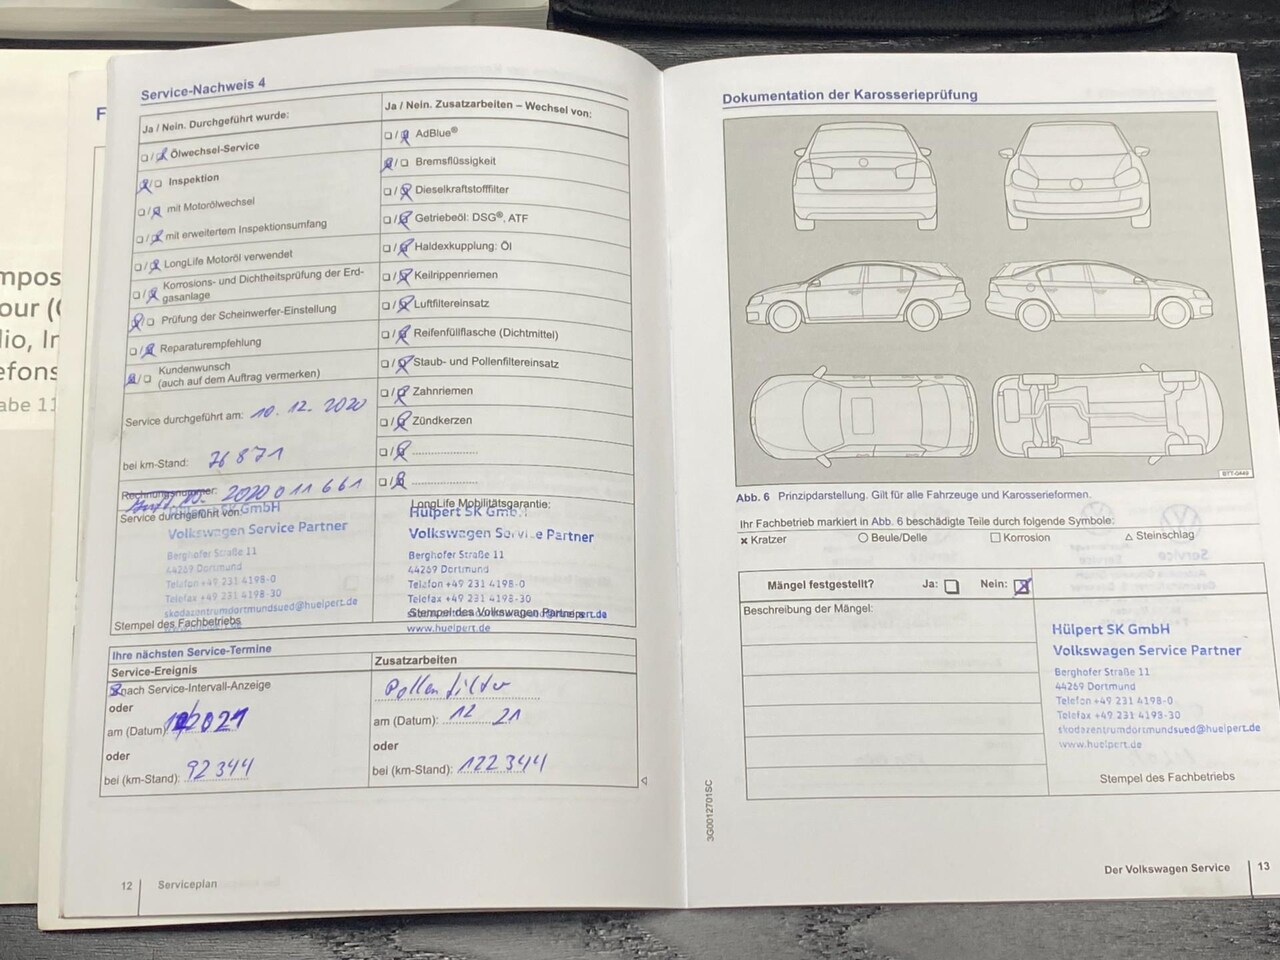 Service-Nachweis 4
Ja / Nein. Durchgeführt wurde:
Ölwechsel-Service
Inspektion
mit Motorölwechsel
mit erweitertem Inspektionsumfang
LongLife Motoröl verwendet
Korrosions- und Dichtheitsprüfung der Erd-
gasanlage
Prüfung der Scheinwerfer-Einstellung
Reparaturempfehlung
Kundenwunsch
(auch auf dem Auftrag vermerken)
Service durchgeführt am: 10. 12. 2020
bei km-Stand: 76871
Rechnungsnummer: 2020011661
Service durchgeführt von:
Volkswagen Service Partner
Berghofer Straße 11
44269 Dortmund
Telefon +49 231 4198-0
Telefax +49 231 4198-30
skodazentrumdortmundsued@huelpert.de
Stempel des Fachbetriebs
Ja / Nein. Zusatzarbeiten – Wechsel von:
AdBlue®
Bremsflüssigkeit
Dieselkraftstofffilter
Getriebeöl: DSG®, ATF
Haldexkupplung: Öl
Keilrippenriemen
Luftfiltereinsatz
Reifenfüllflasche (Dichtmittel)
Staub- und Pollenfiltereinsatz
Zahnriemen
Zündkerzen
LongLife Mobilitätsgarantie:
Hülpert SK GmbH
Volkswagen Service Partner
Berghofer Straße 11
44269 Dortmund
Telefon +49 231 4198-0
Telefax +49 231 4198-30
Stempel des Volkswagen Partners
www.huelpert.de
Ihre nächsten Service-Termine
Service-Ereignis
nach Service-Intervall-Anzeige
oder
am (Datum):
oder
bei (km-Stand): 92344
Zusatzarbeiten
Pollenfilter
am (Datum): 12 21
oder
bei (km-Stand): 122344
12
Serviceplan
Dokumentation der Karosserieprüfung
B7T-0449
Abb. 6 Prinzipdarstellung. Gilt für alle Fahrzeuge und Karosserieformen.
Ihr Fachbetrieb markiert in Abb. 6 beschädigte Teile durch folgende Symbole:
Kratzer Beule/Delle Korrosion Steinschlag
Mängel festgestellt? Ja: Nein:
Beschreibung der Mängel:
Hülpert SK GmbH
Volkswagen Service Partner
Berghofer Straße 11
44269 Dortmund
Telefon +49 231 4198-0
Telefax +49 231 4198-30
skodazentrumdortmundsued@huelpert.de
www.huelpert.de
Stempel des Fachbetriebs
3G0012701SC
Der Volkswagen Service
13